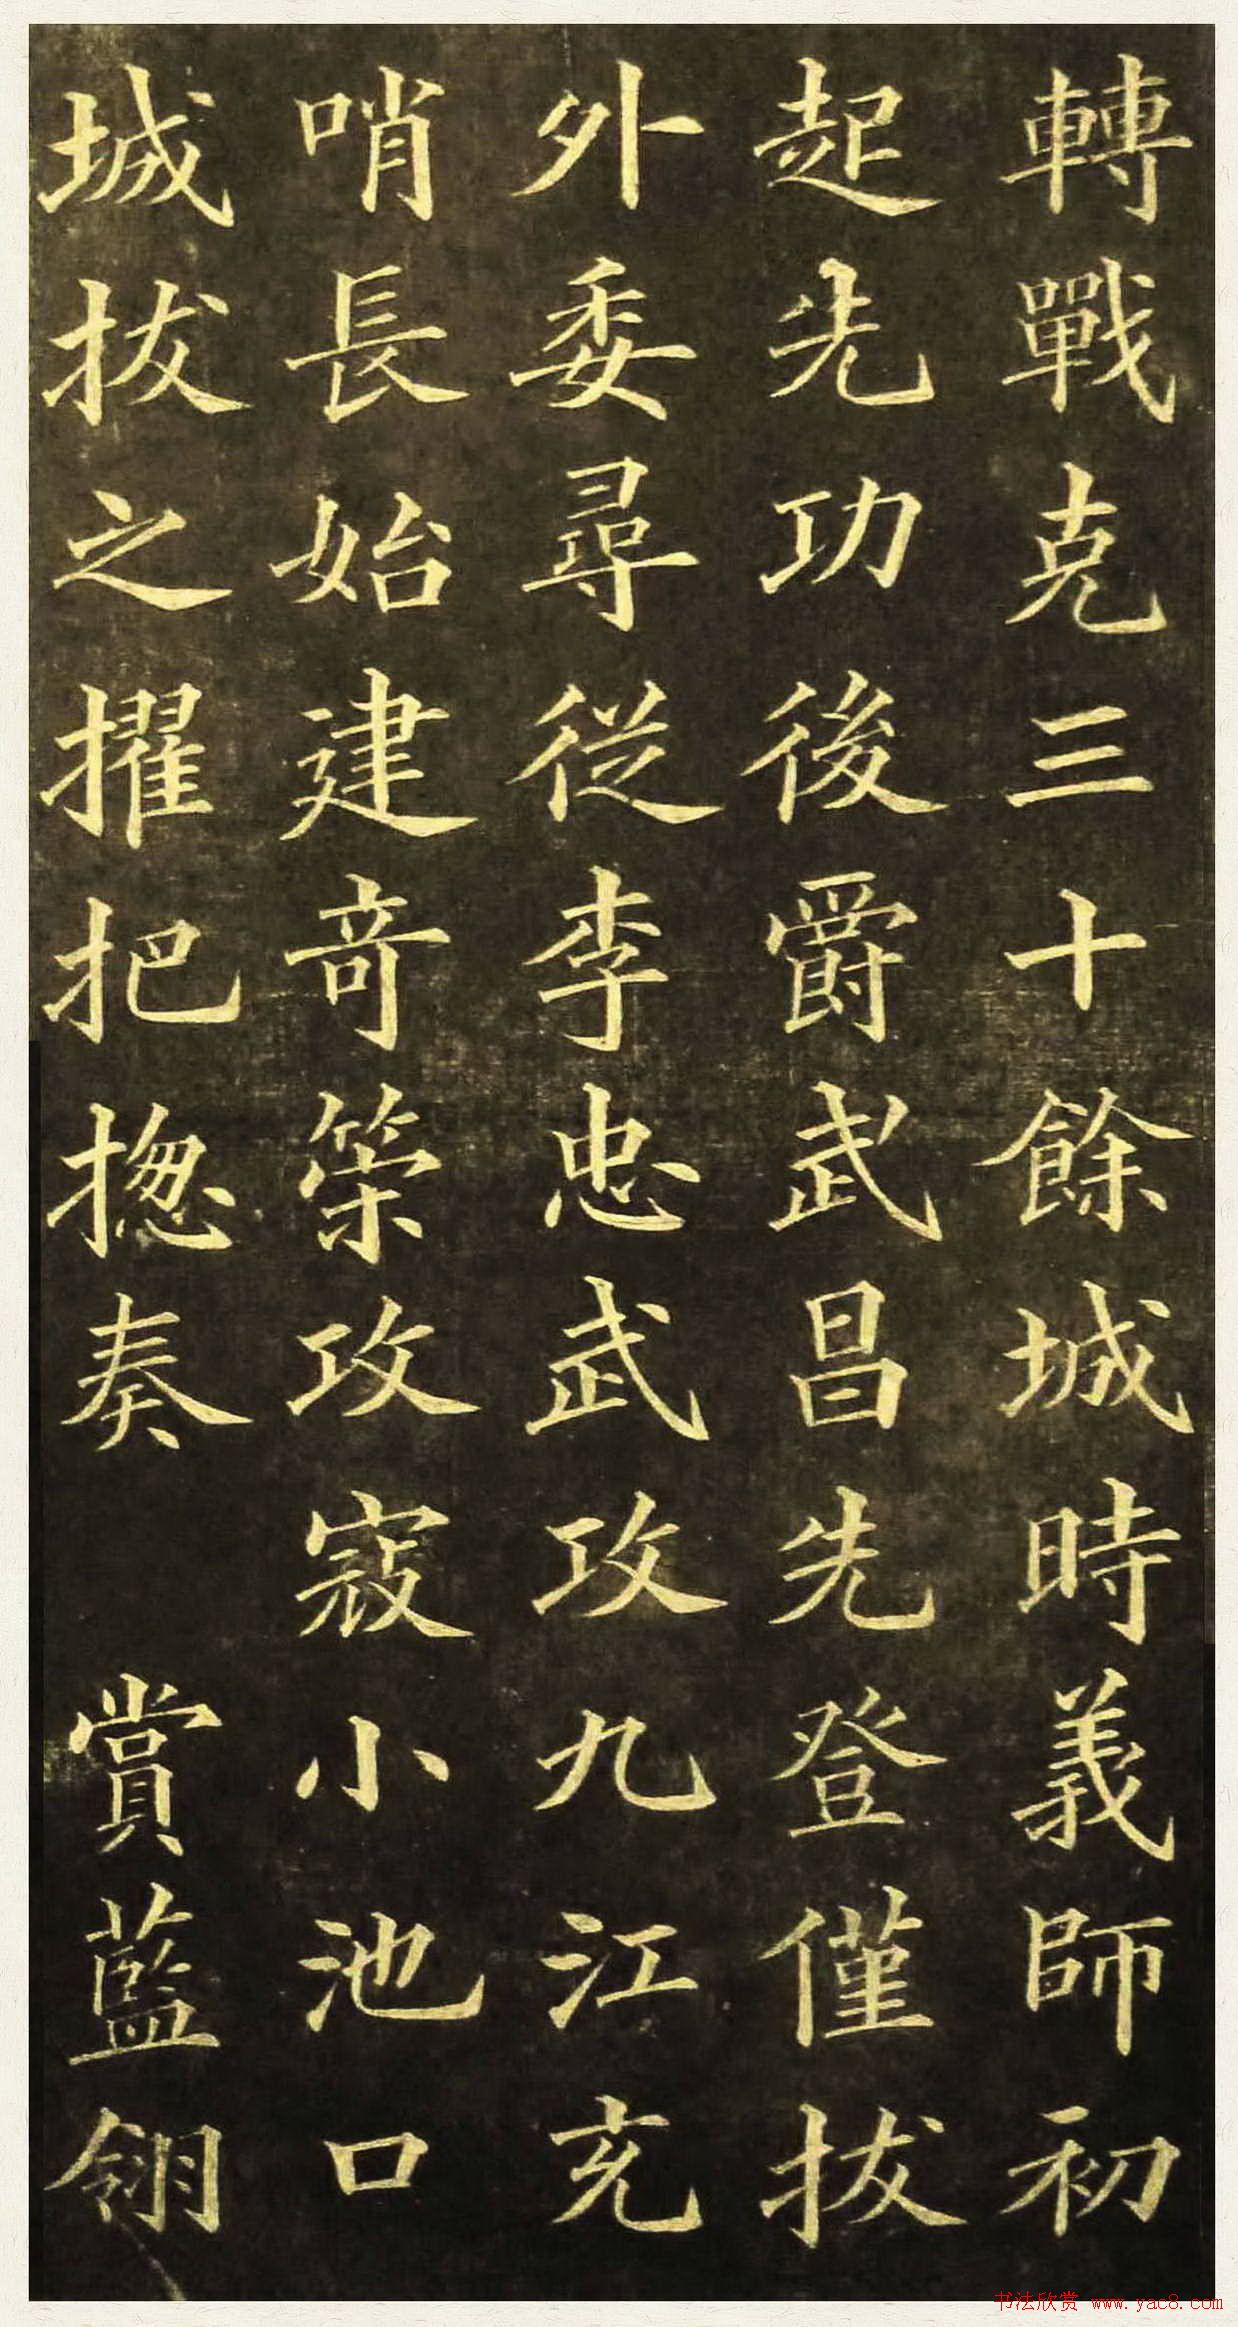 轉戰克三十餘城時義師初
起先功後爵武昌先登僅拔
外委尋從李忠武攻九江充
哨長始建奇策攻寇小池口
城拔之擢把揔奏賞藍翎
书法欣赏 www.yac8.com